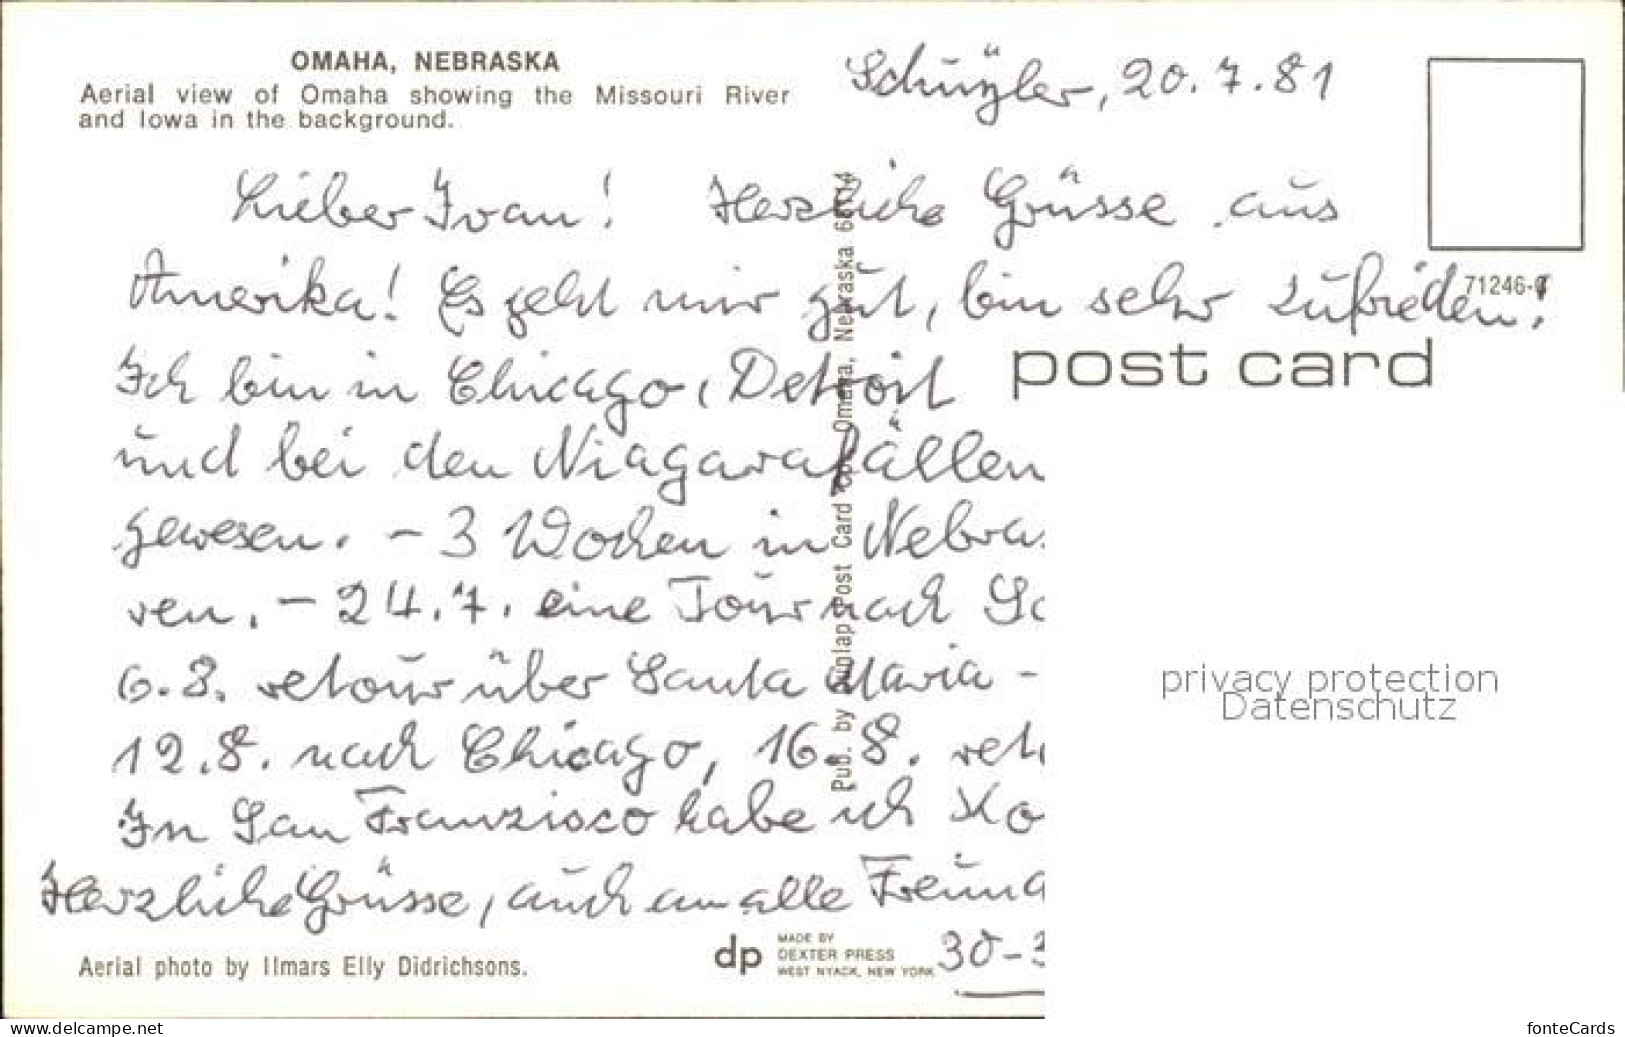 OMAHA, NEBRASKA
Aerial view of Omaha showing the Missouri River
and Iowa in the background.
Schüyler, 20.7.81
Lieber Ivan! Herzliche Grüsse aus
Amerika! Es geht mir gut, bin sehr zufrieden!
71246-
post card
Ich bin in Chicago, Detroit
und bei den Niagarafällen
gewesen. - 3 Wochen in Nebra
ren. - 24.7. eine Tour nach
6.8. retour über Santa Maria -
12.8. nach Chicago, 16.8. ret
In San Franzisco habe ich Ko
Herzliche Grüsse, auch an alle Freun
30-3
Pub. by Post Card Omaha, Nebraska
Aerial photo by Ilmars Elly Didrichsons.
dp
MADE BY
DEXTER PRESS
WEST NYACK, NEW YORK
privacy protection
Datenschutz
www.delcampe.net
fonteCards